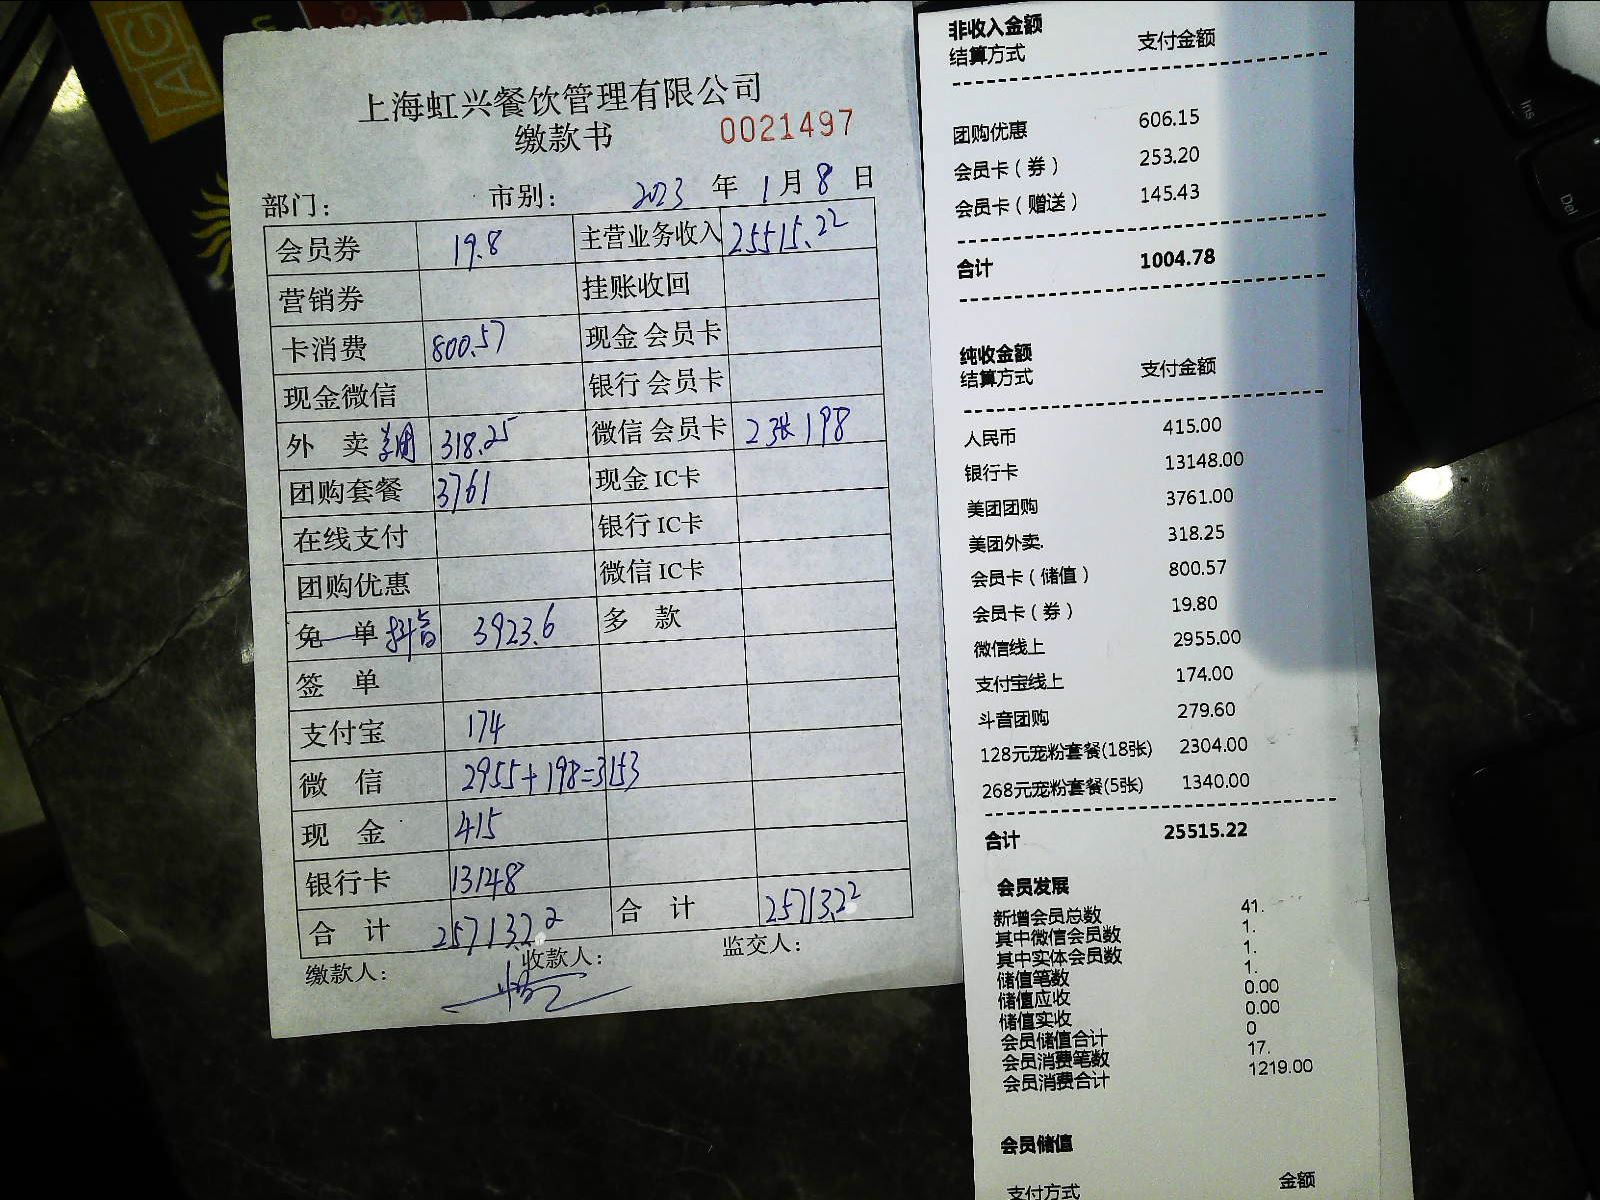 AG
上海虹兴餐饮管理有限公司
缴款书 0021497
部门： 市别： 2023 年 1 月 8 日
会员券 19.8 主营业务收入 25515.22
营销券 挂账收回
卡消费 800.57 现金会员卡
现金微信 银行会员卡
外卖 美团 318.25 微信会员卡 2张198
团购套餐 3761 现金IC卡
在线支付 银行IC卡
团购优惠 微信IC卡
免单 抖音 3923.6 多款
签单
支付宝 174
微信 2955+198=3153
现金 415
银行卡 13148
合计 25713.22 合计 25713.22
缴款人： 收款人： 监交人：
非收入金额
结算方式 支付金额
团购优惠 606.15
会员卡（券） 253.20
会员卡（赠送） 145.43
合计 1004.78
纯收金额
结算方式 支付金额
人民币 415.00
银行卡 13148.00
美团团购 3761.00
美团外卖. 318.25
会员卡（储值） 800.57
会员卡（券） 19.80
微信线上 2955.00
支付宝线上 174.00
斗音团购 279.60
128元宠粉套餐(18张) 2304.00
268元宠粉套餐(5张) 1340.00
合计 25515.22
会员发展
新增会员总数 41.
其中微信会员数 1.
其中实体会员数 1.
储值笔数 1.
储值应收 0.00
储值实收 0.00
会员储值合计 0
会员消费笔数 17.
会员消费合计 1219.00
会员储值
支付方式 金额
Ins
Del